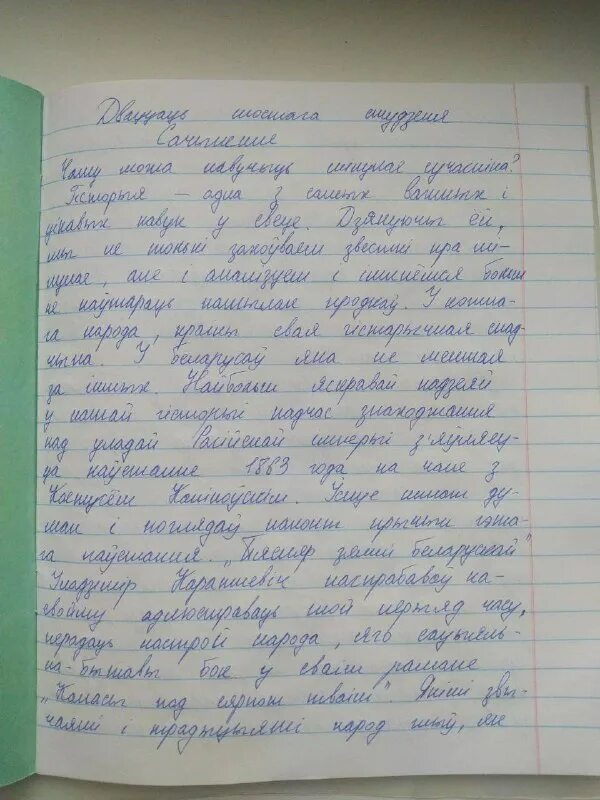 Дваццаць шостага студзеня
Сачыненне
Чаму можа навучыць мінулае сучасніка?
Гісторыя — адна з самых важных і
цікавых навук у свеце. Дзякуючы ёй,
мы не толькі захоўваем звесткі пра мі-
нулае, але і аналізуем і імкнёмся больш
не паўтараць памылак продкаў. У кожна-
га народа, краіны свая гістарычная спад-
чына. У беларусаў яна не меншая
за іншых. Найбольш яскравай падзеяй
у нашай гісторыі падчас знаходжання
пад уладай Расійскай імперыі з'яўляец-
ца паўстанне 1863 года на чале з
Кастусём Каліноўскім. Існуе шмат ду-
мак і поглядаў наконт прычын гэта-
га паўстання. „Пясняр зямлі беларускай"
Уладзімір Караткевіч паспрабаваў па-
свойму адлюстраваць той перыяд часу,
перадаць настрой народа, яго сацыяль-
на-бытавы бок у сваім рамане
„Каласы пад сярпом тваім". Якімі звы-
чаямі і традыцыямі народ жыў, як